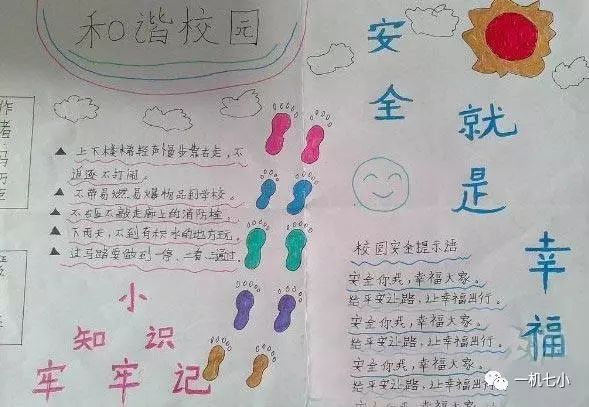 和谐校园
作者
▲ 上下楼梯轻声慢步靠右走,不
追逐不打闹。
▲ 不带易燃易爆物品到学校。
▲ 不敲走廊上的消防栓。
▲ 下雨天,不到有积水的地方玩。
▲ 过马路要做到一停、二看、三通过
小
知识
牢牢记
安全
就是
幸福
校园安全提示语
安全你我,幸福大家。
给平安让路,让幸福出行。
安全你我,幸福大家。
给平安让路,让幸福出行。
安全你我,幸福大家。
给平安让路,让幸福出行。
一机七小